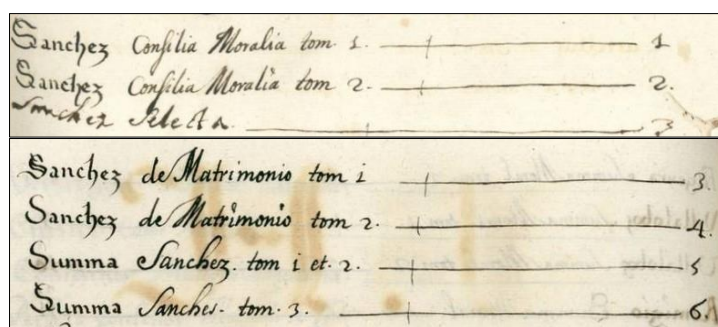 Sanchez Consilia Moralia tom 1. 1
Sanchez Consilia Moralia tom 2. 2.
Sanchez Selecta 3
Sanchez de Matrimonio tom 1 3.
Sanchez de Matrimonio tom 2. 4.
Summa Sanchez. tom 1 et. 2. 5
Summa Sanches. tom. 3. 6.